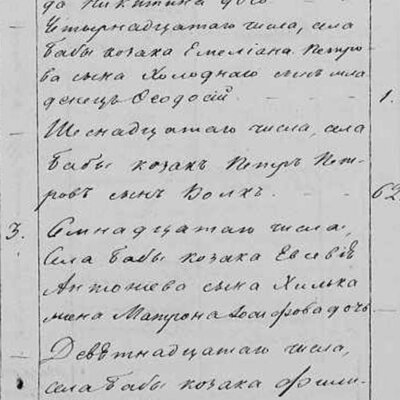 да Никитина доч
Четырнадцатаго числа, села
Бабы козака Емелiана Петро-
ва сына Холоднаго сынъ мла
денецъ Феодосiй. 1.
Шеснадцатаго числа, села
Бабы козакъ Петръ Пет-
ровъ сынъ Волкъ. 62
3. Семнадцатаго числа,
села Бабы козака Евсевiя
Антонiева сына Хилька
жена Матрона Iосифова дочь
Девятнадцатаго числа,
села Бабы козака Фили-